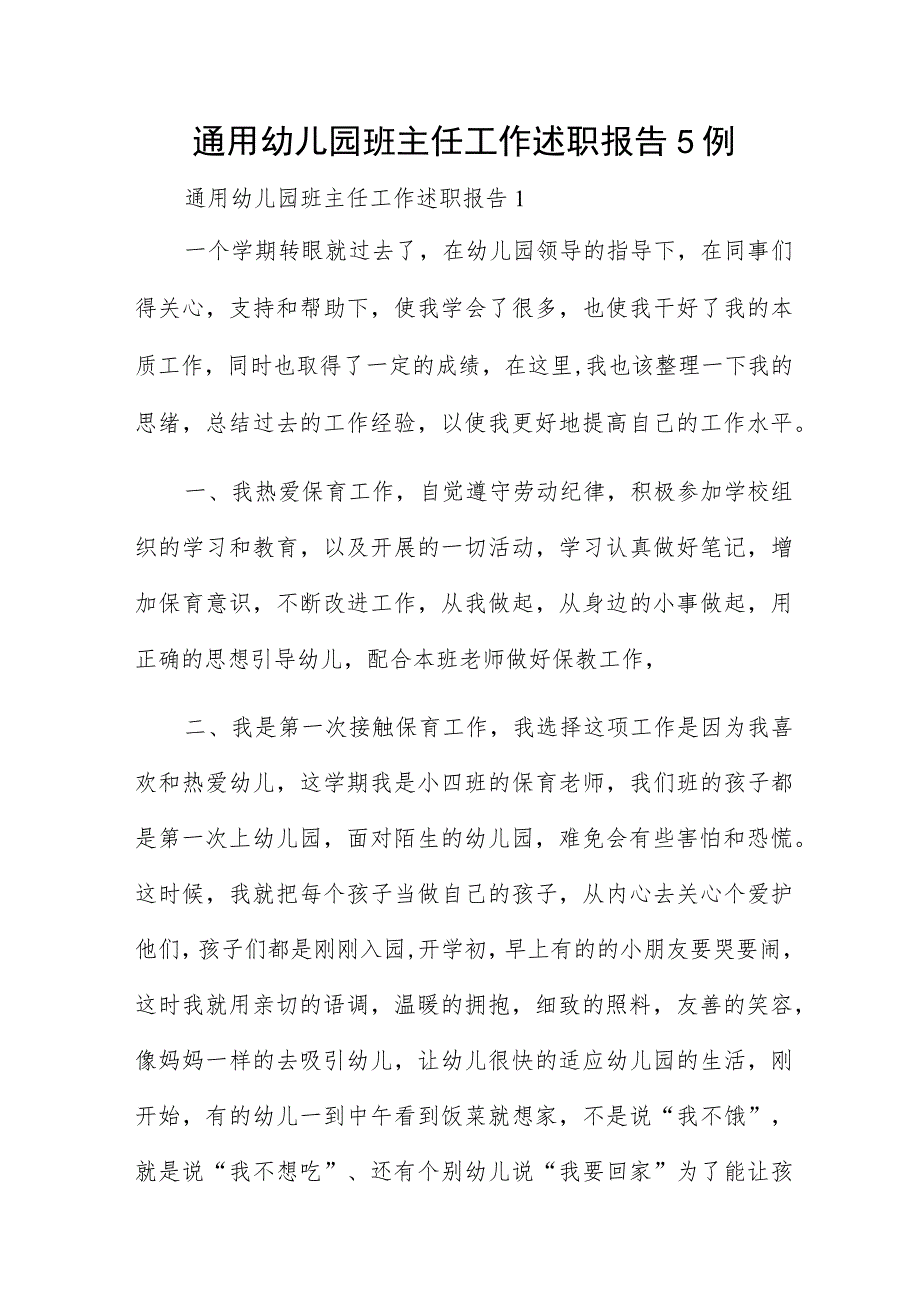 通用幼儿园班主任工作述职报告5例
通用幼儿园班主任工作述职报告1
一个学期转眼就过去了，在幼儿园领导的指导下，在同事们
得关心，支持和帮助下，使我学会了很多，也使我干好了我的本
质工作，同时也取得了一定的成绩，在这里,我也该整理一下我的
思绪，总结过去的工作经验，以使我更好地提高自己的工作水平。
一、我热爱保育工作，自觉遵守劳动纪律，积极参加学校组
织的学习和教育，以及开展的一切活动，学习认真做好笔记，增
加保育意识，不断改进工作，从我做起，从身边的小事做起，用
正确的思想引导幼儿，配合本班老师做好保教工作，
二、我是第一次接触保育工作，我选择这项工作是因为我喜
欢和热爱幼儿，这学期我是小四班的保育老师，我们班的孩子都
是第一次上幼儿园，面对陌生的幼儿园，难免会有些害怕和恐慌。
这时候，我就把每个孩子当做自己的孩子，从内心去关心个爱护
他们，孩子们都是刚刚入园,开学初，早上有的的小朋友要哭要闹，
这时我就用亲切的语调，温暖的拥抱，细致的照料，友善的笑容，
像妈妈一样的去吸引幼儿，让幼儿很快的适应幼儿园的生活，刚
开始，有的幼儿一到中午看到饭菜就想家，不是说“我不饿”，
就是说“我不想吃”、还有个别幼儿说“我要回家”为了能让孩